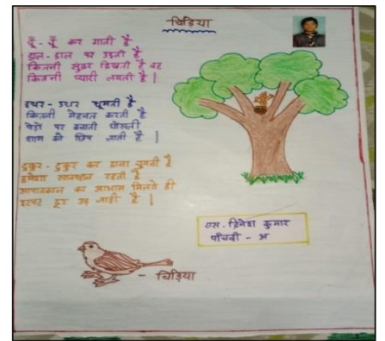 चिड़िया
चूँ - चूँ कर गाती है
डाल - डाल पर उड़ती है
कितनी सुंदर दिखती है वह
कितनी प्यारी लगती है |
इधर - उधर घूमती है
कितनी मेहनत करती है
पेड़ो पर बनाती घोंसला
शाम को छिप जाती है |
टुकुर - टुकुर कर दाना चुगती है
हमेशा सावधान रहती है
आपातकाल का आभास मिलते ही
दूर उड़ जाती है |
एस. दिनेश कुमार
पाँचवी - अ
- चिड़िया